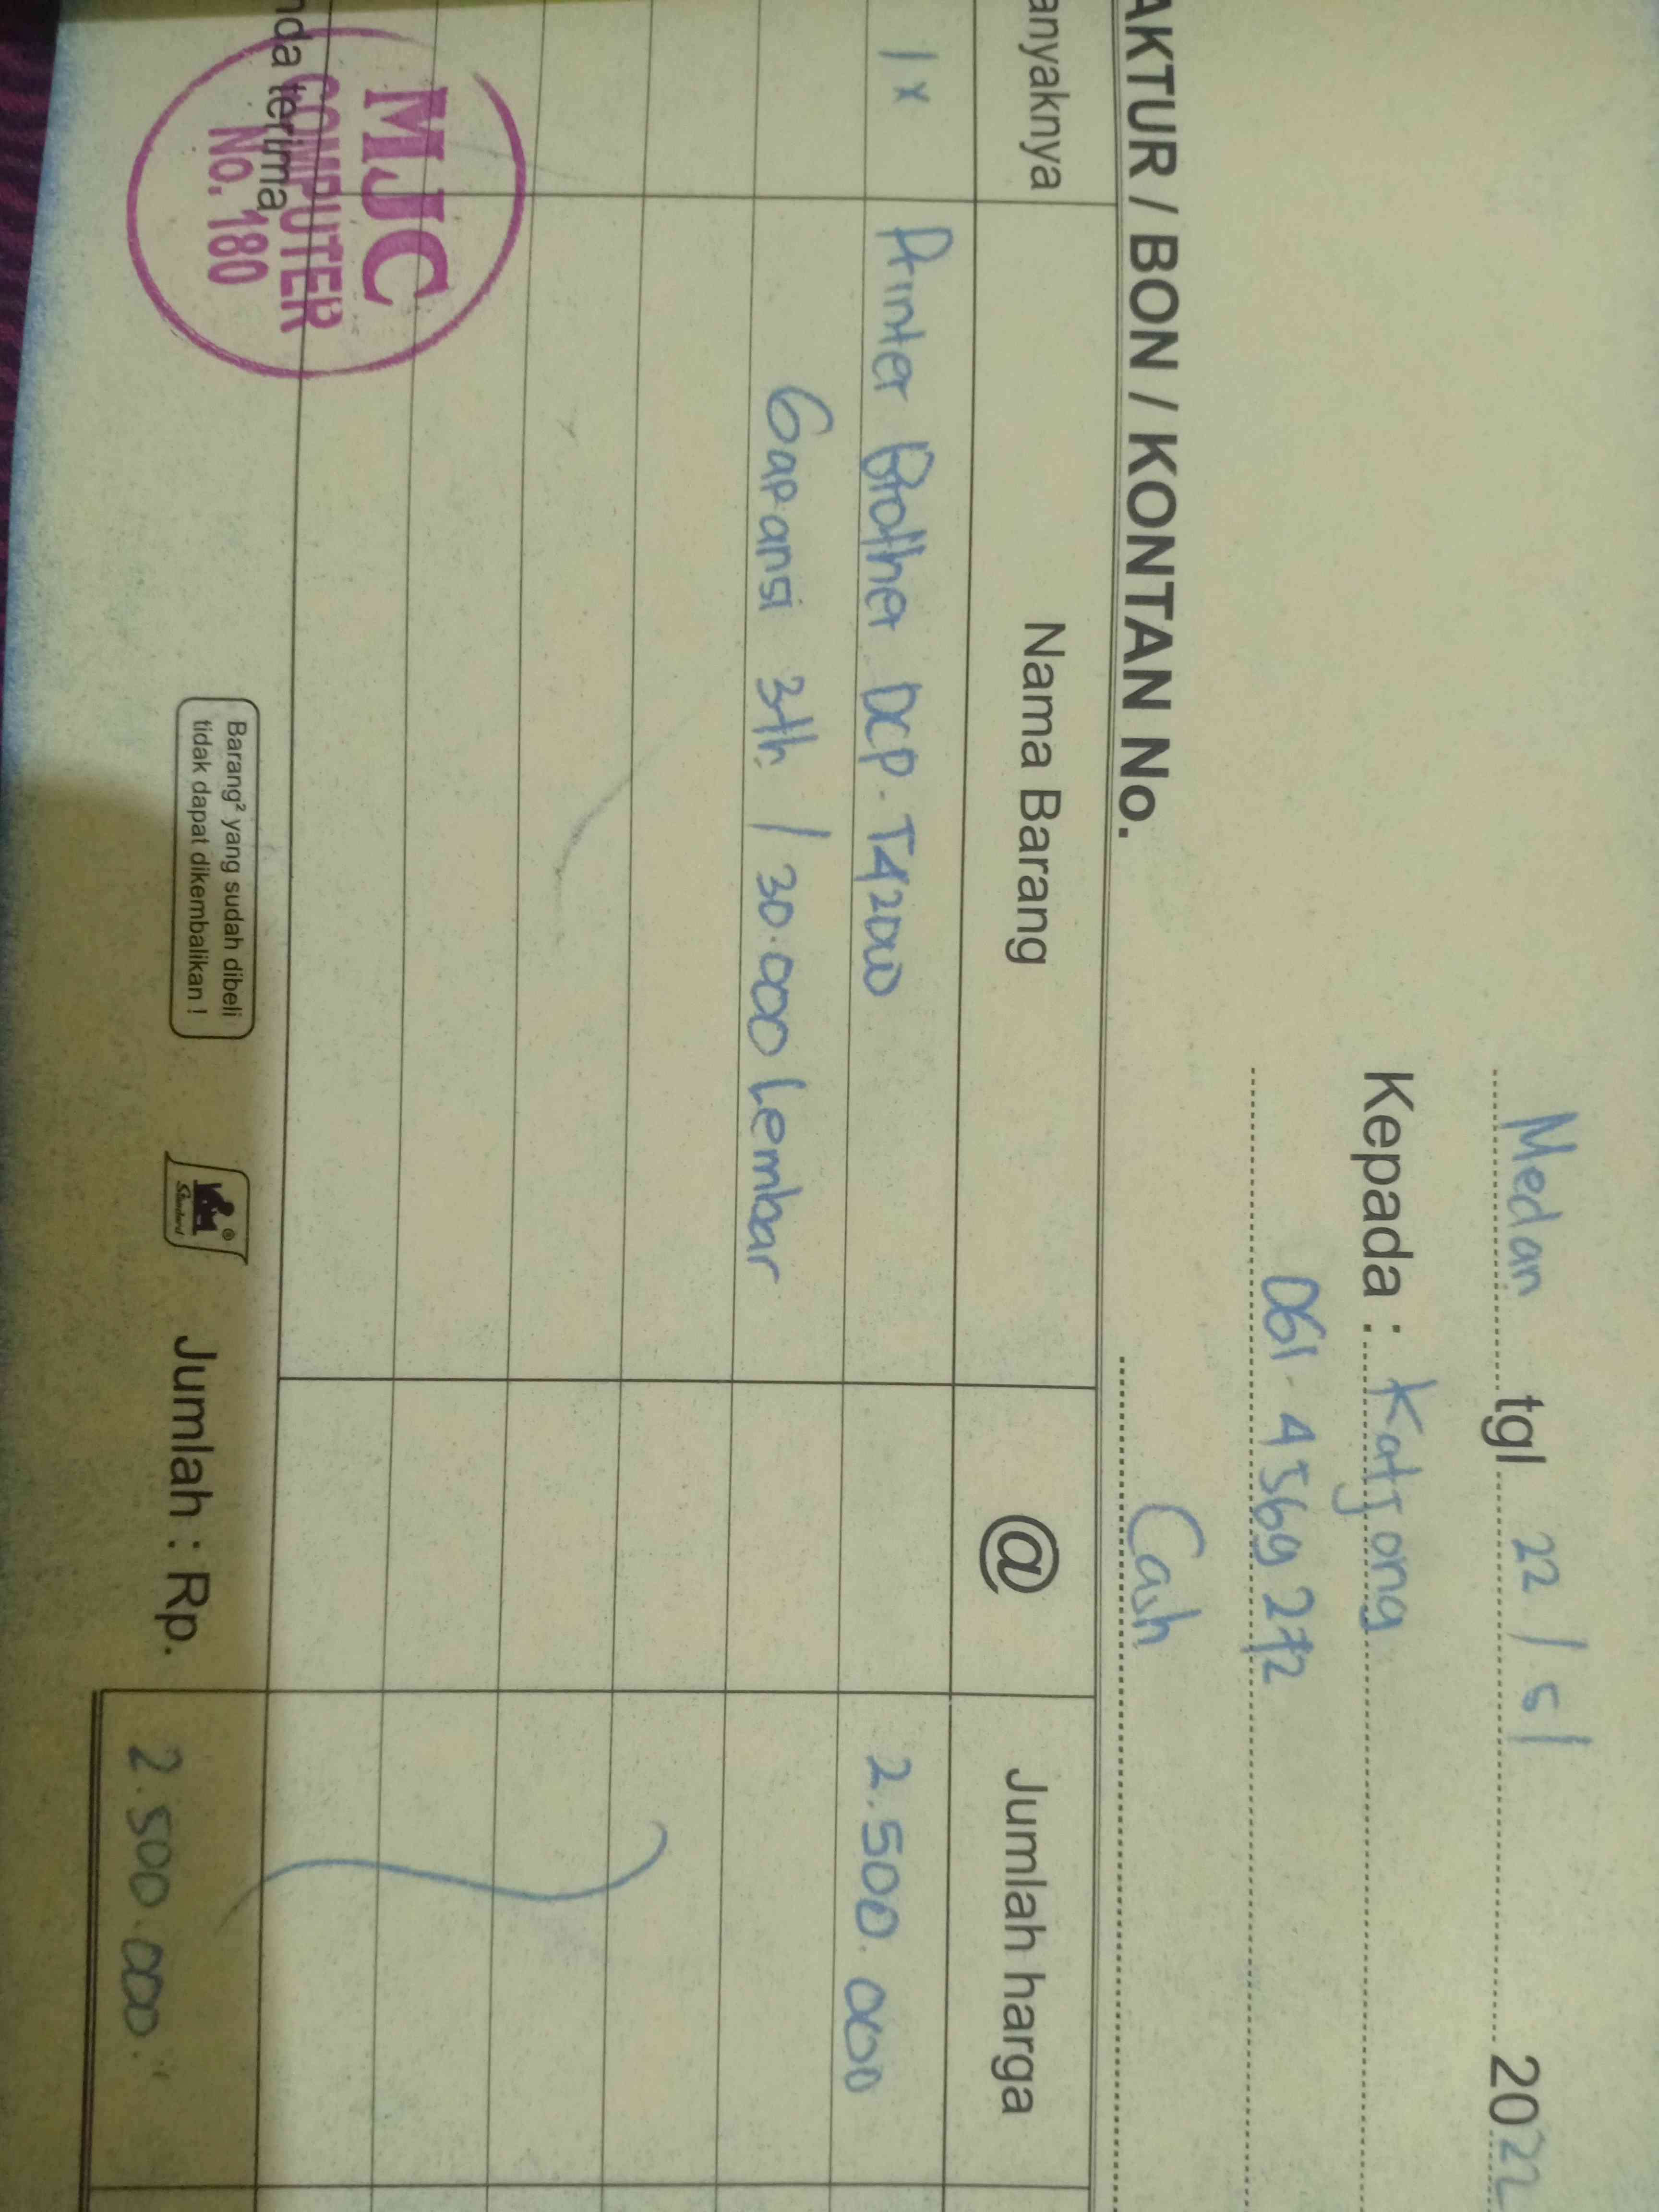 Medan tgl 22/5/ 2022
Kepada : Katjong
061-4569272
AKTUR / BON / KONTAN No. Cash
anyaknya Nama Barang @ Jumlah harga
1 x Printer Brother DCP-T420W 2.500.000
Garansi 3th / 30.000 Lembar
nda terima
MJC
COMPUTER
No. 180
Barang² yang sudah dibeli
tidak dapat dikembalikan !
Standard ®
Jumlah : Rp. 2.500.000.